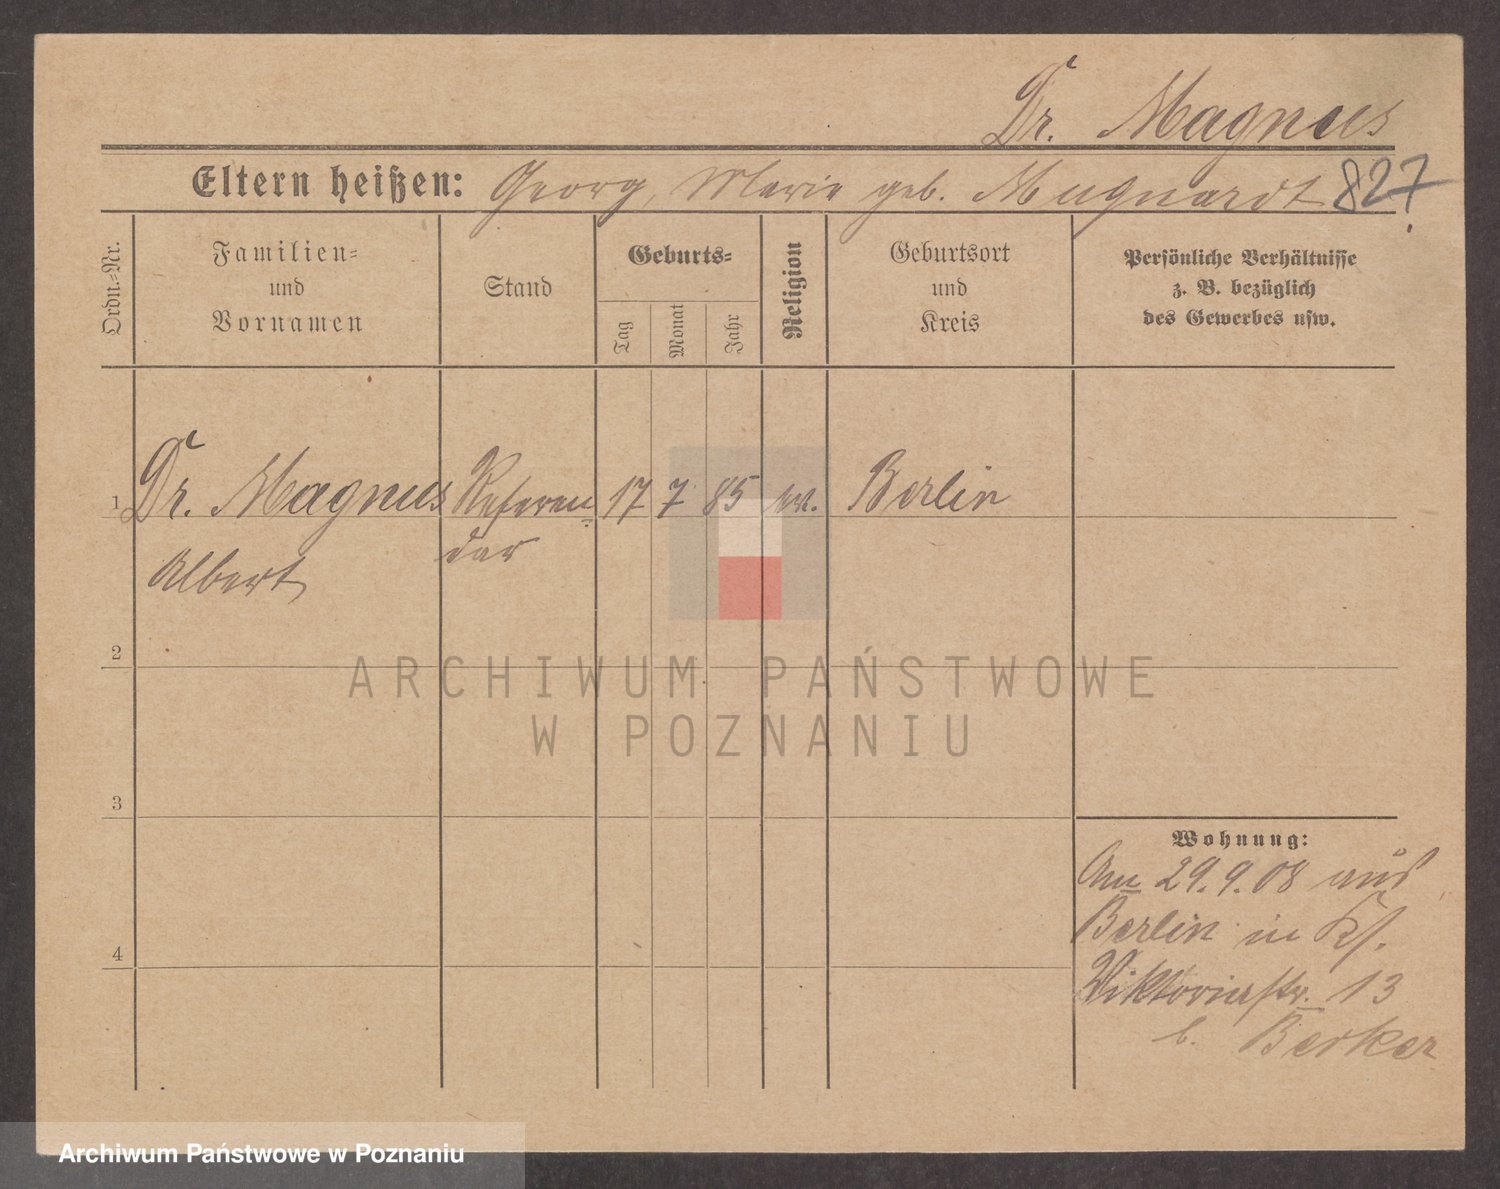 Dr. Magnus
Eltern heißen: Georg, Marie geb. Mugnardt 827
Ordn.-Nr.
Familien-
und
Vornamen
Stand
Geburts-
Tag
Monat
Jahr
Religion
Geburtsort
und
Kreis
Persönliche Verhältnisse
z. B. bezüglich
des Gewerbes usw.
1 Dr. Magnus Referen- 17 7 85 Berlin
Albert dar
2
ARCHIWUM PAŃSTWOWE
W POZNANIU
3
Wohnung:
Am 29.9.08 aus
Berlin in
4
Viktoriastr. 13
b. Berker
Archiwum Państwowe w Poznaniu